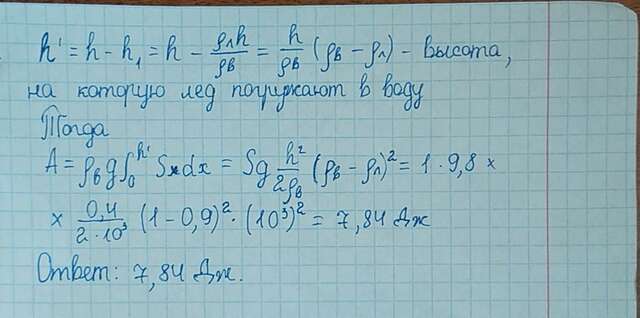 h' = h - h₁ = h - ρлh/ρв = h/ρв (ρв - ρл) - высота,
на которую лед погружают в воду
Тогда
A = ρвg∫₀^h' Sxdx = Sg h²/2ρв (ρв - ρл)² = 1 · 9,8 ×
× 0,4/2·10³ (1 - 0,9)² · (10³)² = 7,84 Дж
Ответ: 7,84 Дж.